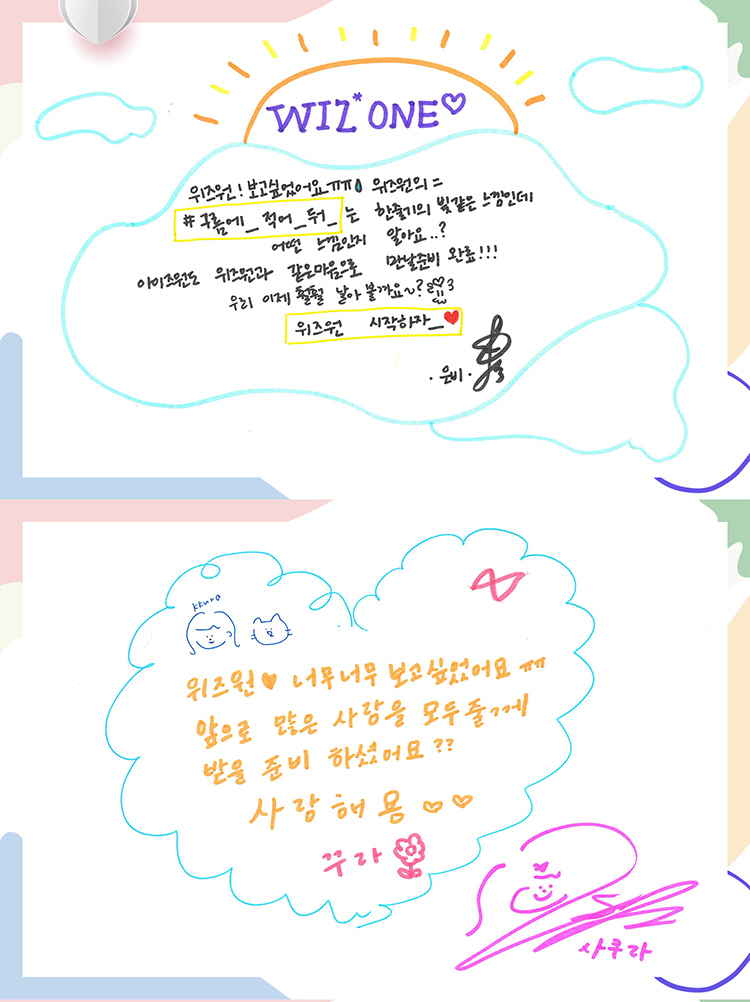 WIZ*ONE♡
위즈원! 보고싶었어요ㅠㅠ 위즈원의 =
#구름에_적어_둬_는 한줄기의 빛같은 느낌인데
어떤 느낌인지 알아요..?
아이즈원도 위즈원과 같은마음으로 만날준비 완료!!!
우리 이제 훨훨 날아 볼까요~?
위즈원 시작하자_♥
·은비·
kkura
위즈원♥ 너무너무 보고싶었어요 ㅠㅠ
앞으로 많은 사랑을 모두줄게
받을 준비 하셨어요??
사랑해용 ♡♡
꾸라
사쿠라